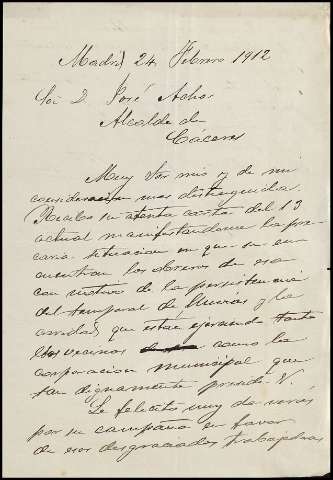 Madrid 24 Febrero 1912
Sr. D. José Acha
Alcalde de
Cáceres
Muy Sor mio y de mi
consideracion mas distinguida.
Recibo su atenta carta del 13
actual manifestandome la pre-
caria situacion en que se en-
cuentran los obreros de esa
con motivo de la persistencia
del temporal de lluvias y la
caridad que estan ejerciendo tanto
los vecinos como la
corporacion municipal que
tan dignamente preside V.
Le felicito muy de veras
por su campaña en favor
de esos desgraciados trabajadores